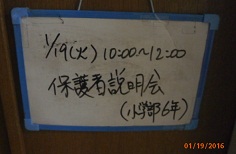 1/19(火) 10:00~12:00
保護者説明会
(小学部6年)
01/19/2016